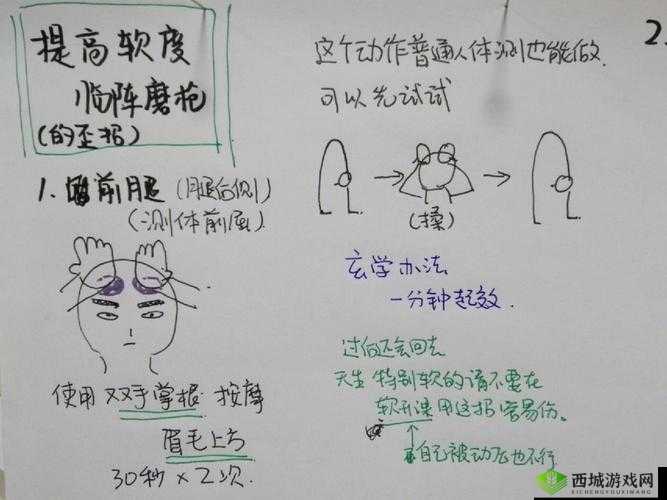 提高软度
临阵磨枪
(的歪招)
1. 前腿 (腿后侧)
(测体前屈)
使用双手掌根 按摩
眉毛上方
30秒×2次.
2.
这个动作普通人体测也能做.
可以先试试
(揉)
玄学办法
一分钟起效.
过何还会回去
天生特别软的请不要在
软开课用这招容易伤。
自己被动也不行
西城游戏网
XICHENGYOUXIWANG.COM